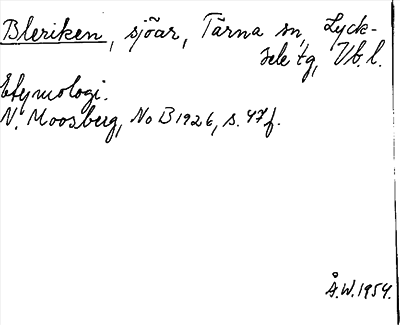 Bleriken, sjöar, Tärna sn, Lyck-
sele tg, Vb. l.
Etymologi.
N. Moosberg, No B 1926, s. 47 f.
Å.W. 1954.